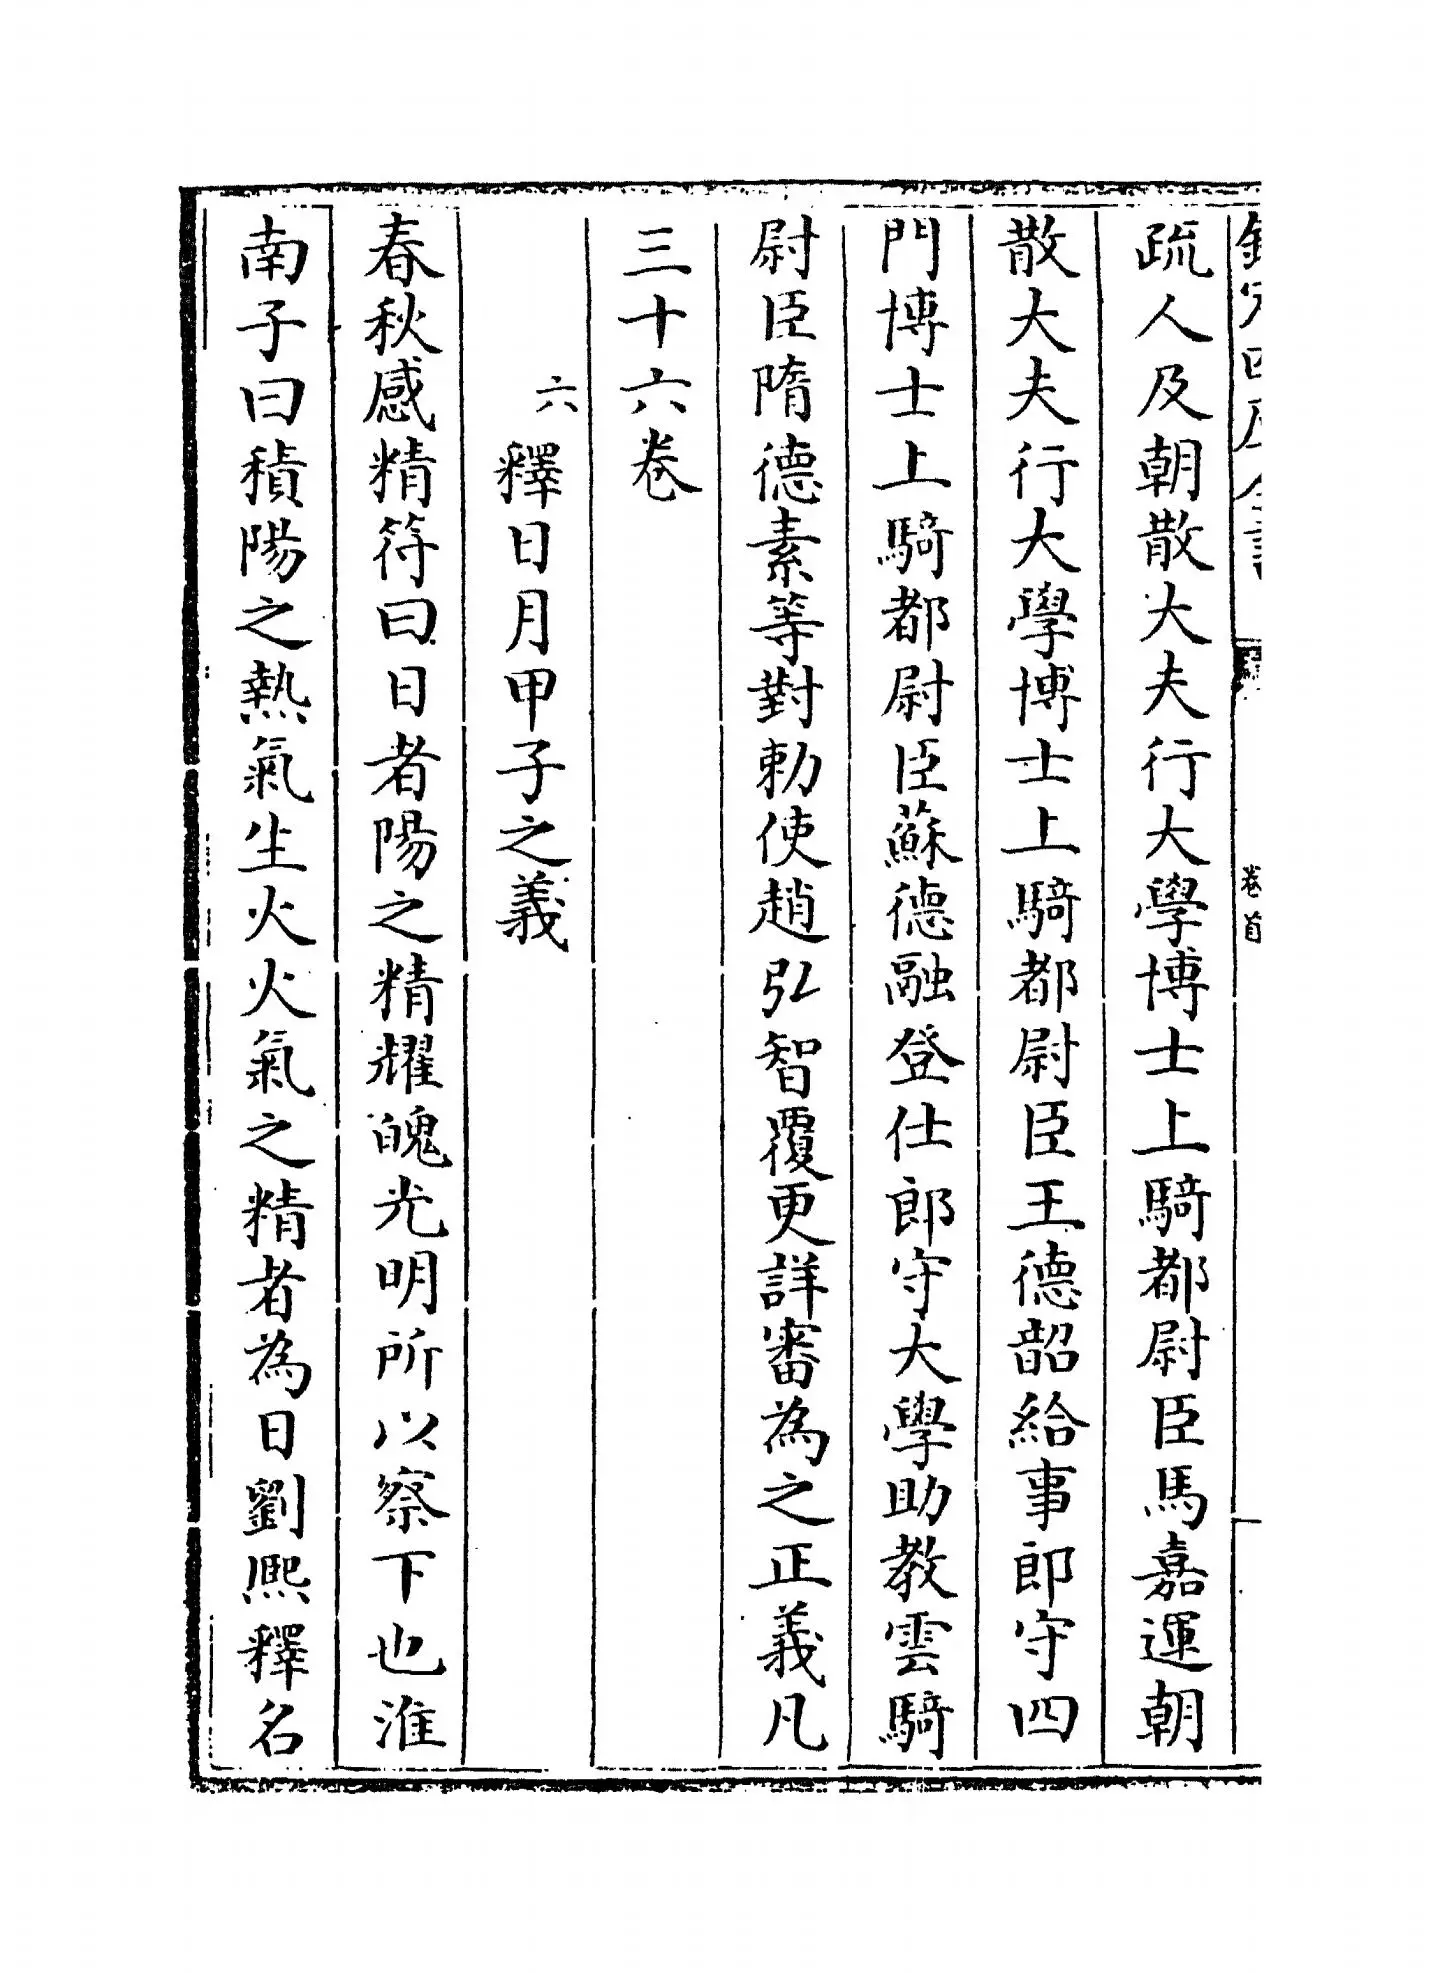 疏人及朝散大夫行大學博士上騎都尉臣馬嘉運朝
散大夫行大學博士上騎都尉臣王德韶給事郎守四
門博士上騎都尉臣蘇德融登仕郎守大學助教雲騎
尉臣隋德素等對勅使趙弘智覆更詳審為之正義凡
三十六卷
六
釋日月甲子之義
春秋感精符曰日者陽之精耀魄光明所以察下也淮
南子曰積陽之熱氣生火火氣之精者為日劉熈釋名
卷首